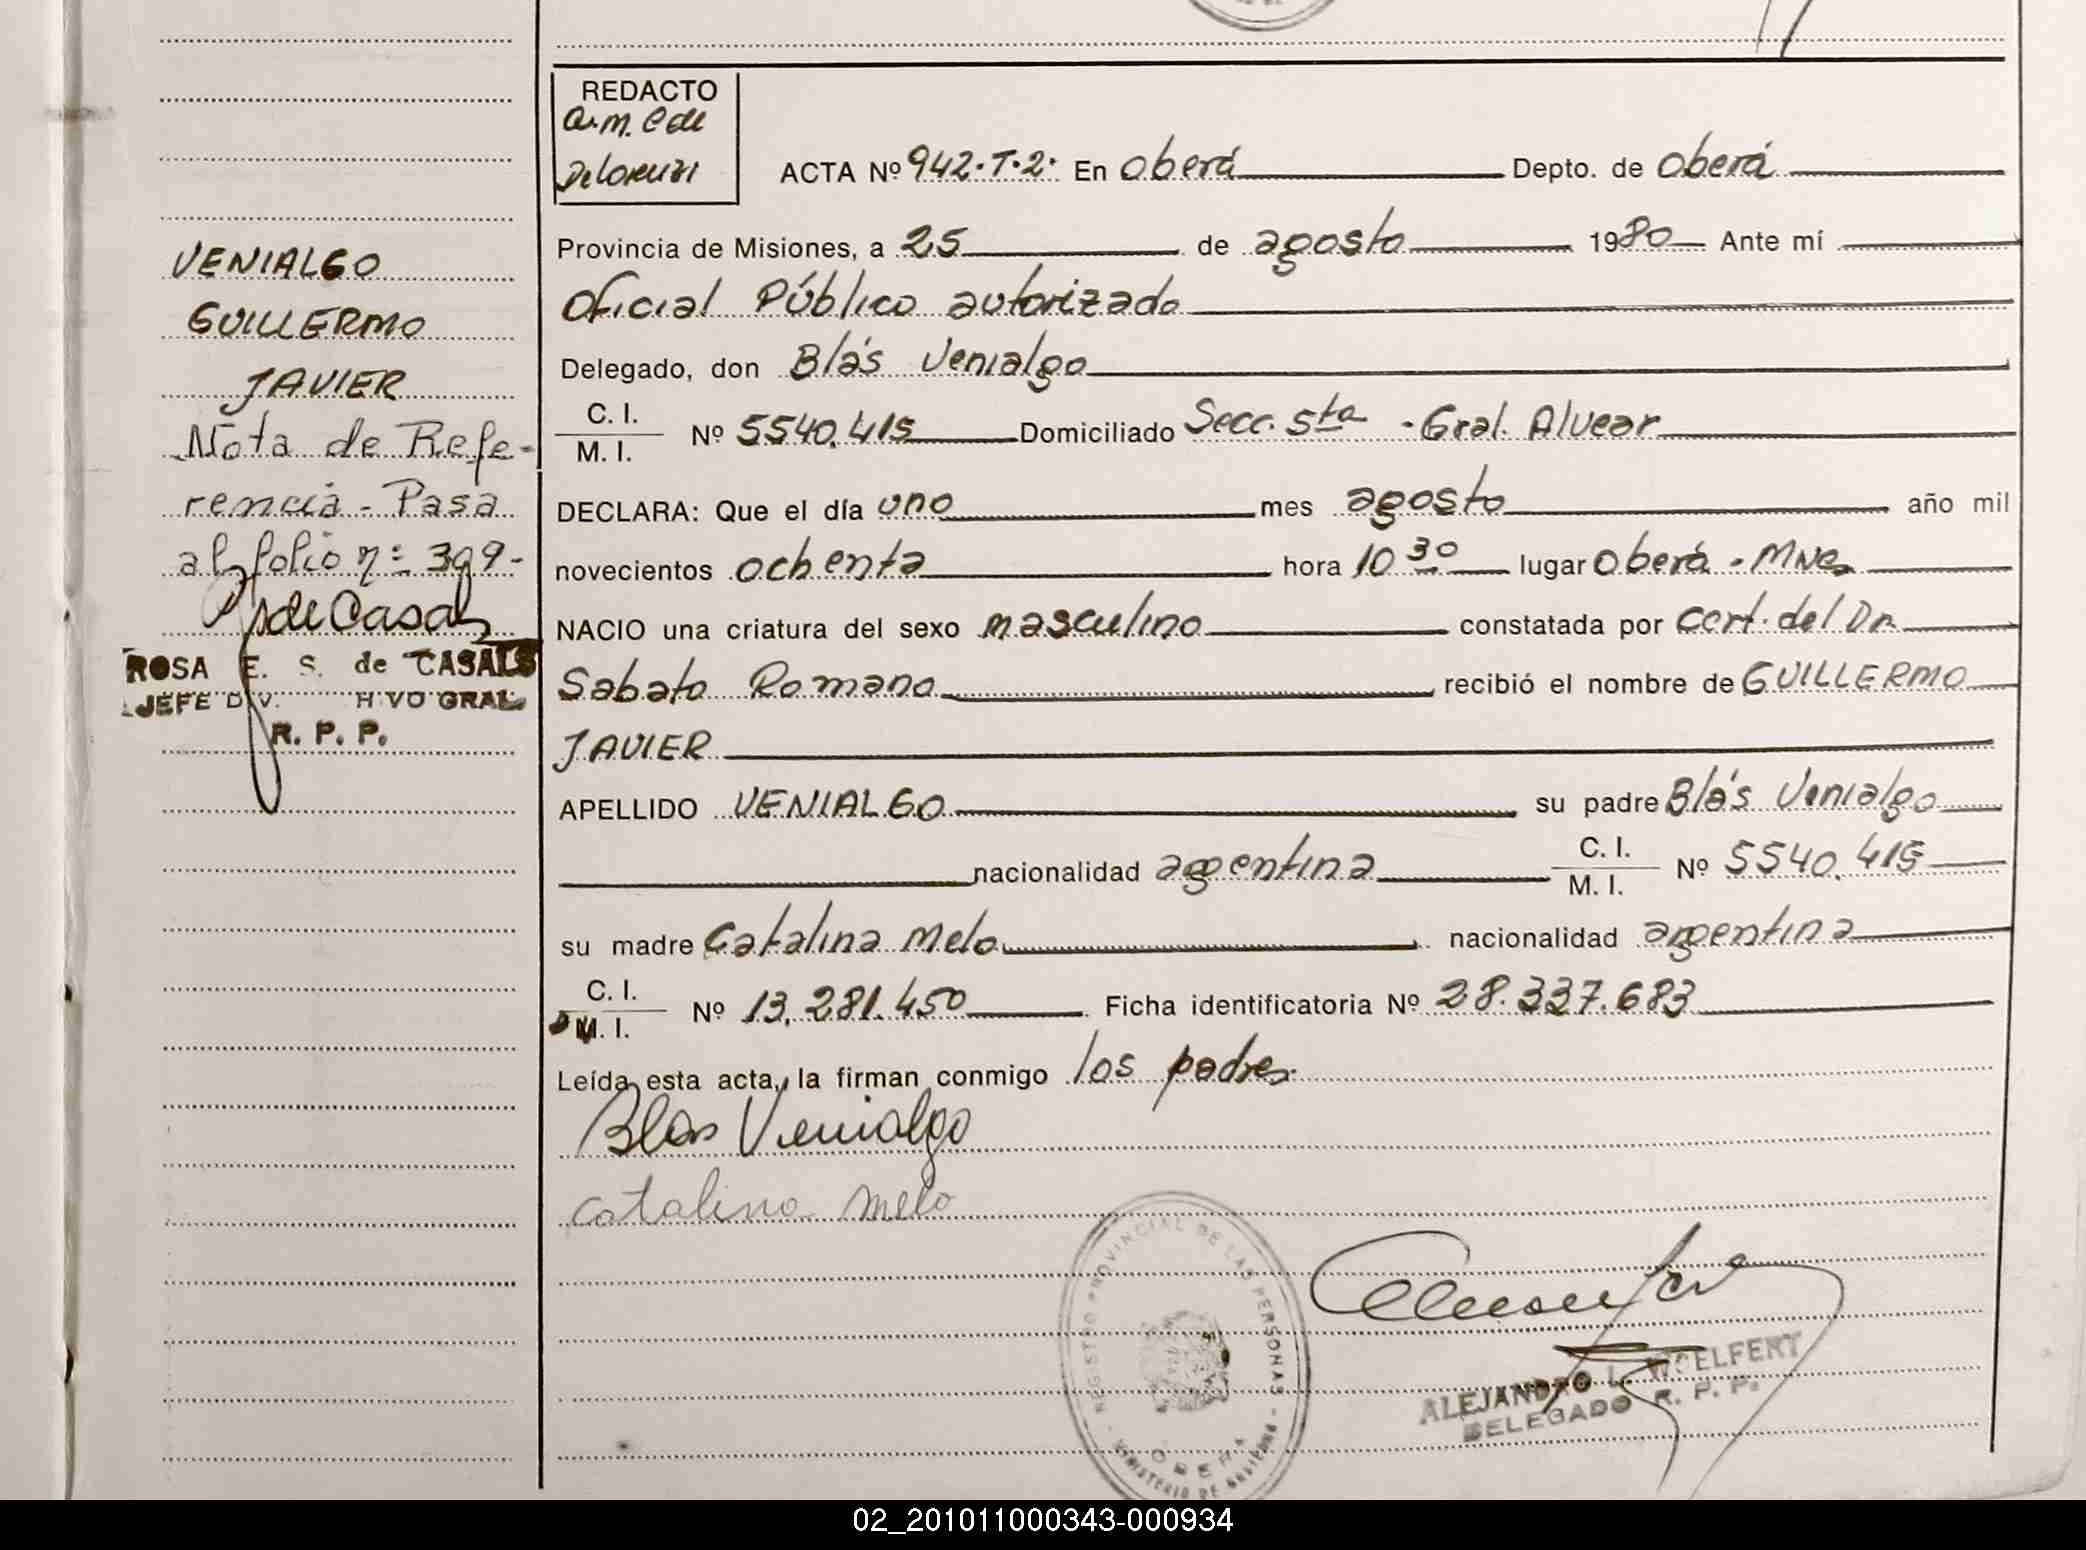 VENIALGO
GUILLERMO
JAVIER
Nota de Refe-
rencia - Pasa
al folio nº 399-
ROSA E. S. de CASALS
JEFE DIV. HIVO GRAL
R. P. P.
REDACTO
ACTA Nº 942-T-2: En Oberá Depto. de Oberá
Provincia de Misiones, a 25 de agosto 1980 Ante mí
Oficial Público autorizado
Delegado, don Blás Venialgo
C. I.
M. I. Nº 5540.415 Domiciliado Secc. 5ta - Gral. Alvear
DECLARA: Que el día uno mes agosto año mil
novecientos ochenta hora 10 30 lugar Oberá - Mnes
NACIO una criatura del sexo masculino constatada por Cert. del Dr.
Sabato Romano recibió el nombre de GUILLERMO
JAVIER
APELLIDO VENIALGO su padre Blás Venialgo
nacionalidad argentina C. I. M. I. Nº 5540.415
su madre Catalina Melo nacionalidad argentina
C. I.
M. I. Nº 13.281.450 Ficha identificatoria Nº 28.337.683
Leída esta acta, la firman conmigo los padres.
Blas Venialgo
Catalina Melo
REGISTRO PROVINCIAL DE LAS PERSONAS
OBERA
ALEJANDRO L. WOELFERT
DELEGADO R. P. P.
02_201011000343-000934